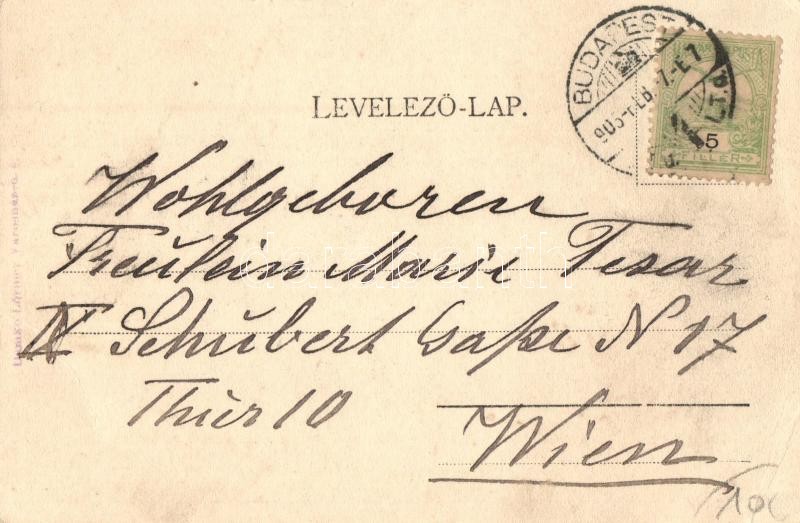 BUDAPEST
905 FEB. 7.-E 7
5
FILLÉR
LEVELEZŐ-LAP.
Wohlgeboren
Freulein Marie Tesar
IX Schubert Gaße N 17
Thür 10
Wien